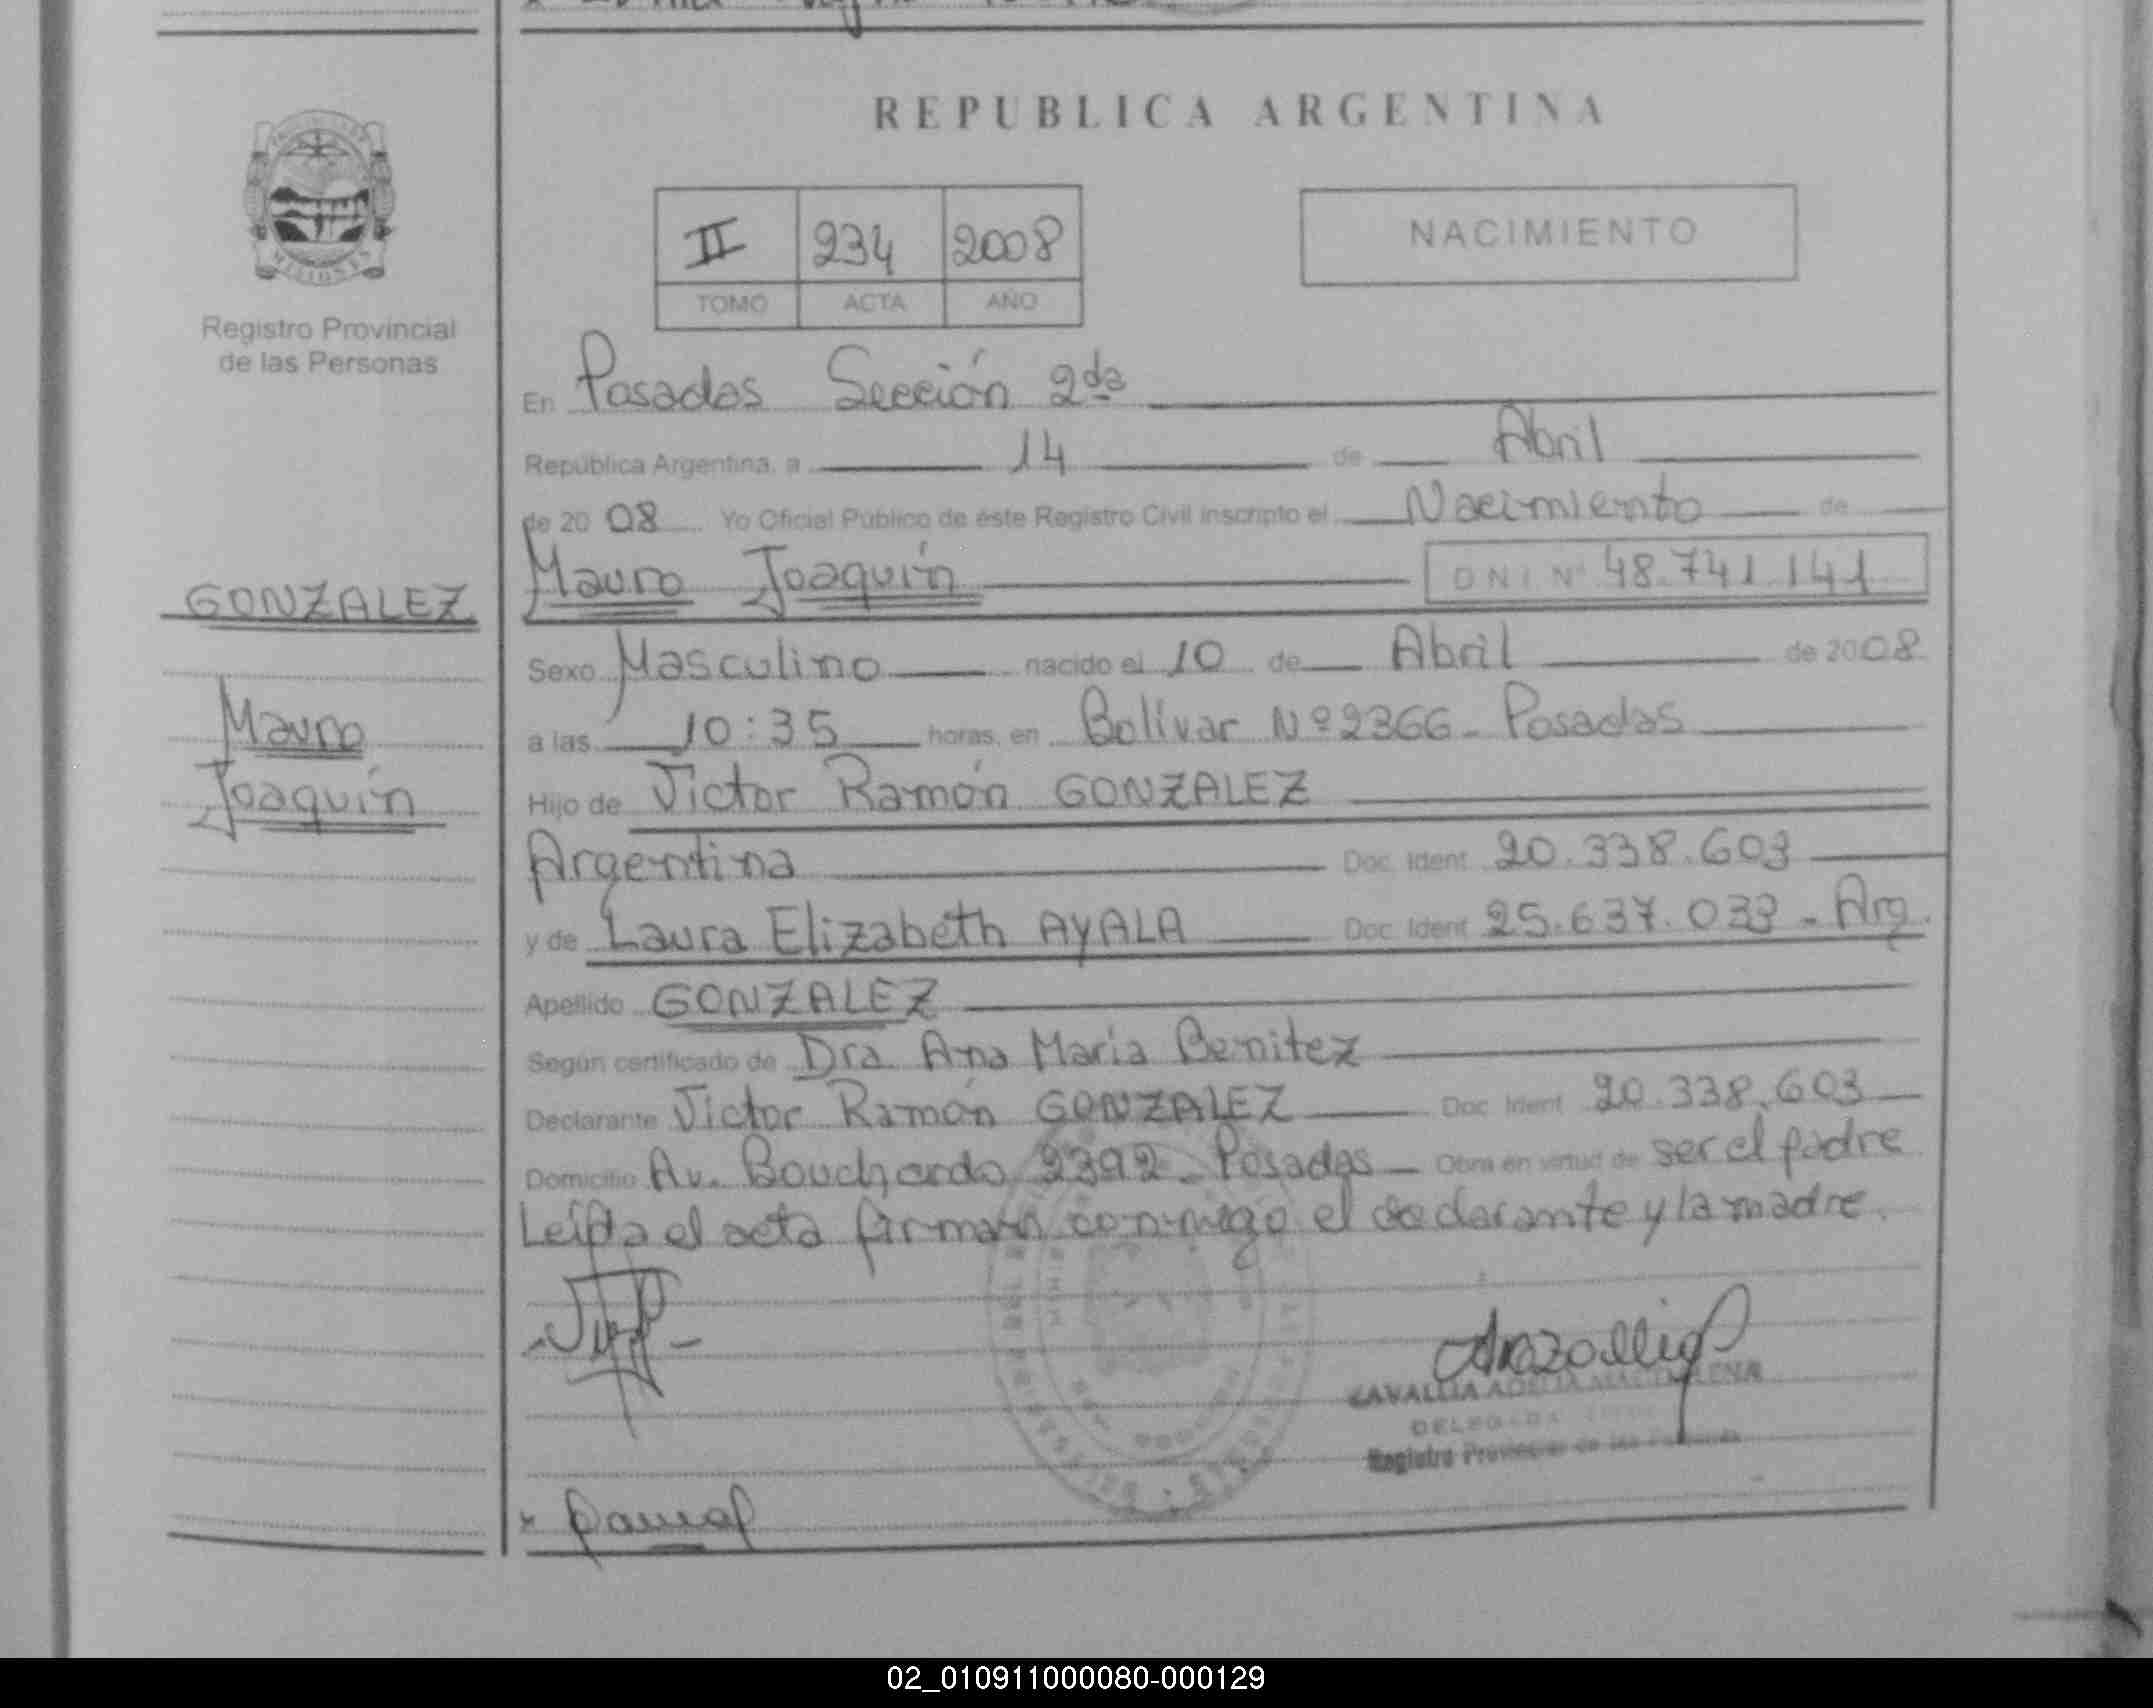 REPUBLICA ARGENTINA
II 234 2008
TOMO ACTA AÑO
NACIMIENTO
MISIONES
Registro Provincial
de las Personas
GONZALEZ
Mauro
Joaquín
En Posadas Sección 2da
República Argentina, a 14 de Abril
de 2008 Yo Oficial Público de éste Registro Civil inscripto el Nacimiento de
Mauro Joaquín DNI Nº 48.741.141
Sexo Masculino nacido el 10 de Abril de 2008
a las 10:35 horas, en Bolívar Nº 2366 - Posadas
Hijo de Victor Ramón GONZALEZ
Argentina Doc. Ident. 20.338.603
y de Laura Elizabeth AYALA Doc. Ident. 25.637.033 - Arg.
Apellido GONZALEZ
Según certificado de Dra Ana Maria Benitez
Declarante Victor Ramón GONZALEZ Doc. Ident. 20.338.603
Domicilio Av. Bouchardo 2392 - Posadas Obra en virtud de ser el padre
Leída el acta firman conmigo el declarante y la madre.
DELEGADA
Registro Provincial de las Personas
02_010911000080-000129